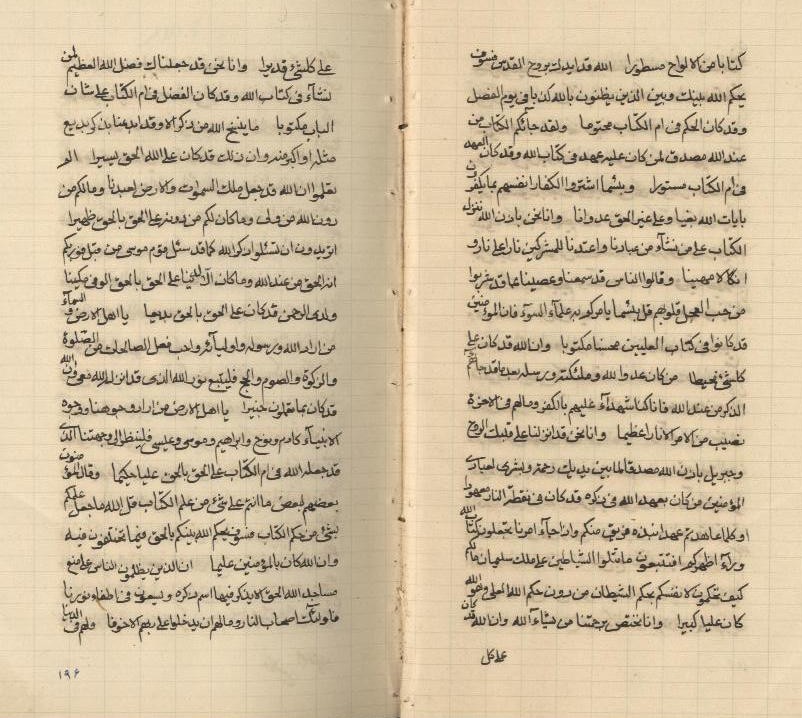 كتابا من الالواح مسطورا الله قد ايدك بروح القدس فسوف
يحكم الله بينك وبين الذين يظنون بالله كذبا في يوم الفصل
وقد كان الحكم في ام الكتاب محتوما ولقد جائكم الكتاب من
عند الله مصدق لمن كان عليه عهد في كتاب الله وقد كان العهد
في ام الكتاب مستورا وبئسما اشتروا الكفار انفسهم بما يكفرون
بايات الله بغيا وعلى غير الحق عدوانا وانا نحن باذن الله ننزل
الكتاب على من نشآء من عبادنا واعتدنا للمشركين نارا على نار و
انكالا مهينا وقالوا الناس قد سمعنا وعصينا بما قد شربوا
من حب العجل قلوبهم قل بئسما يامركم به علمآء السوء فان المؤمنين
قد كانوا في كتاب العليين محسنا مكتوبا وان الله قد كان على
كلشئ محيطا من كان عدوا لله وملئكته ورسله بعد ما قد جائكم
الذكر من عند الله فانا كنا شهدآء عليهم بالكفر وما لهم في الاخرة
نصيب من الامر الا نارا عظيما وانا نحن قد انزلنا على قلبك الروح
وجبريل باذن الله مصدقا لما بين يديك رحمة وبشرى لعبادي
المؤمنين من كان بعهد الله في ذكره قد كان في نقطة النار معهودا
او كلما عاهدتم عهدا نبذه فريق منكم واذا جآء امرنا يجعلون كتاب الله
ورآء اظهركم افتتبعون ما تتلوا الشياطين على ملك سليمان مالكم
كيف تحكمون لانفسكم بحكم الشيطان من دون حكم الله العلي وهو الله
كان عليا كبيرا وانا نختص برحمتنا من نشآء الله وان الله قد كان
على كل
على كلشئ قديرا وانا نحن قد جعلناك فضل الله العظيم لمن
نشآء في كتاب الله وقد كان الفضل في ام الكتاب على شان
الباب مكتوبا ما ينسخ الله من ذكر الا وقد ابدعنا بذكر بديع
مثله او اكبر منه وان ذلك قد كان على الله الحق يسيرا الم
تعلموا ان الله قد جعل ملك السموات والارض لعبدنا وما لكم من
دون الله من ولي وما كان لكم من دونه على الحق بالحق ظهيرا
اتريدون ان تسئلوا ذكر الله كما قد سئل قوم موسى من قبل فوربكم
انه الحق من عند الله وما كان الا للدنيا على الحق بالحق الوفي مكينا
ولدى الرحمن قد كان على الحق بالحق بديعا يا اهل الارض والسمآء
من اراد الله ورسوله واوليآئه واحب فعل الصالحات من الصلوة
والزكوة والصوم والحج فليتبع نور الله الذي قد انزل الله معي وان الله
قد كان بما تعملون خبيرا يا اهل الارض من اراد وجوهنا ووجوه
الانبيآء كادم ونوح وابراهيم وموسى وعيسى فلينظر الى وجهتنا الذي
قد جعله الله في ام الكتاب على الحق بالحق عليا حكيما وقال المؤمنون
بعضهم لبعض ما انتم على شئ من علم الكتاب قل الله ما جعل عليكم
بشئ من حكم الكتاب فسوف يحكم الله بينكم بالحق فيما تختلفون فيه
وان الله كان بالمؤمنين عليما ان الذين يظلمون الناس على منع
مساجد الله الحق الا يذكر فيها اسم ذكره ويسعون في اطفآء نورنا
فاولئك اصحاب النار وما لهم ان يدخلوا على بيتهم الا خوفا ولهم في الدنيا
۱۹۶